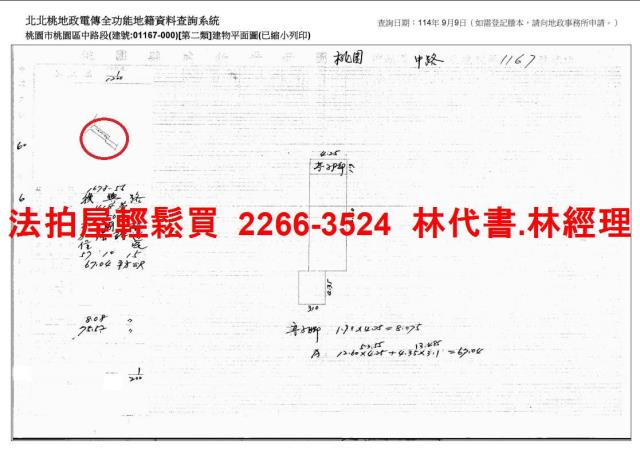 北北桃地政電傳全功能地籍資料查詢系統
查詢日期：114年9月9日（如需登記謄本，請向地政事務所申請。）
桃園市桃園區中路段(建號:01167-000)[第二類]建物平面圖(已縮小列印)
桃園 中路 1167
1260
60
4.25
亭子脚
678-56
6
法拍屋輕鬆買 2266-3524 林代書.林經理
住
57 10 15
67.04 平方
4.35
310
8.08 〃
75.57 〃
亭子脚 1.90×4.25=8.075
53.55 13.485
A 12.60×4.25+4.35×3.1=67.04
1
200